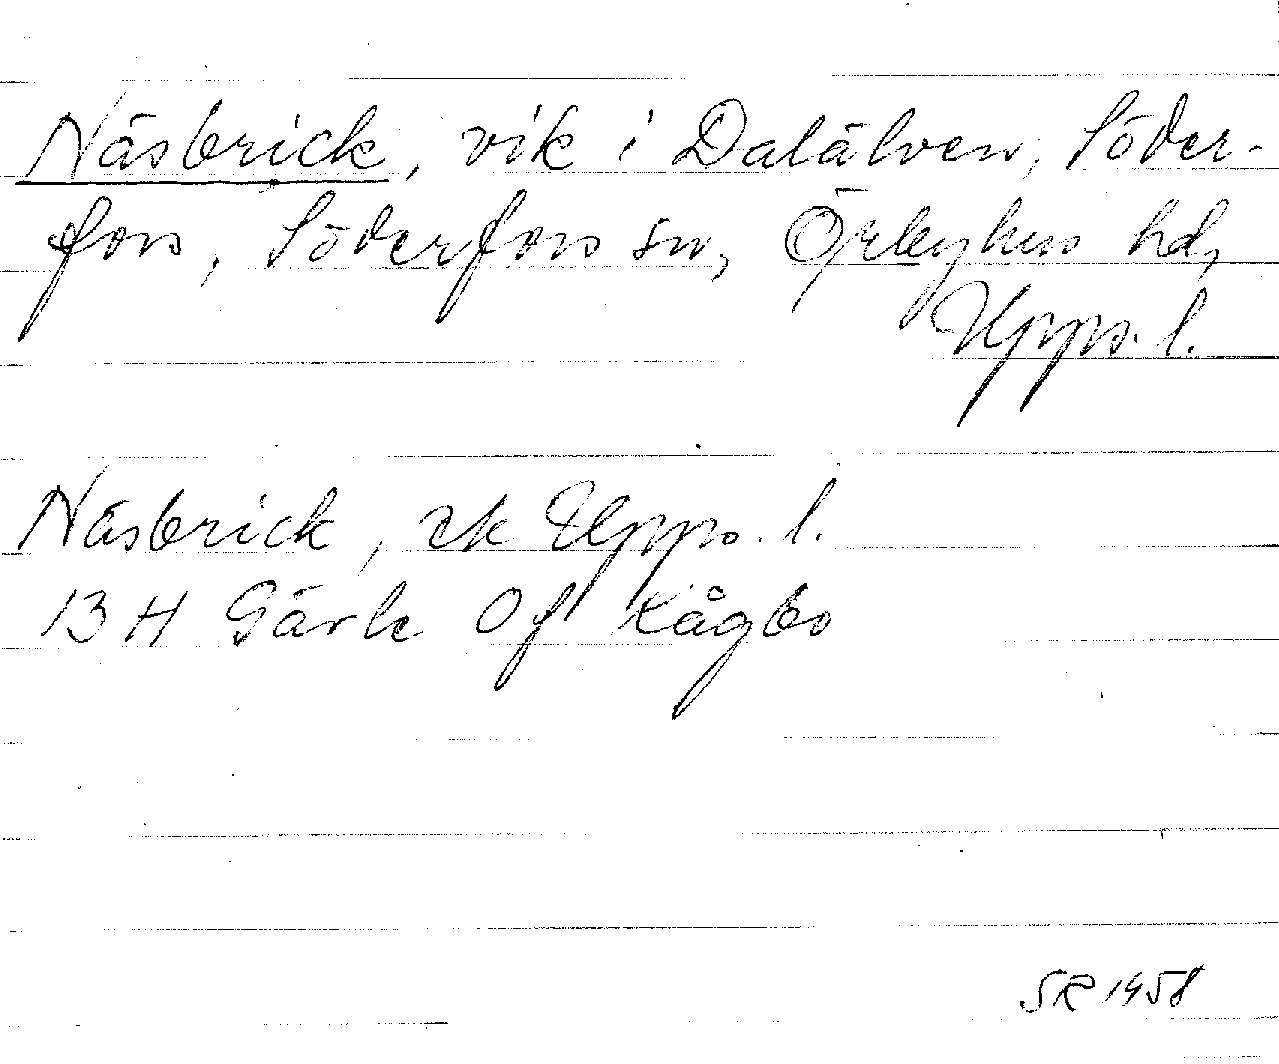 Näsbrick, vik i Dalälven, Söder-
fors, Söderfors sn, Örbyhus hd,
Upps. l.
Näsbrick, ek Upps. l.
13 H Gävle Of Kågbo
SR 1958